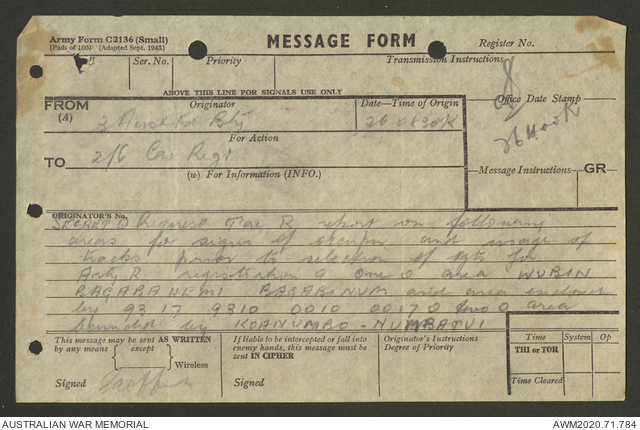 Army Form C2136 (Small)
(Pads of 100) (Adapted Sept. 1943)
MESSAGE FORM
Register No.
Call Ser. No. Priority Transmission Instructions
ABOVE THIS LINE FOR SIGNALS USE ONLY
FROM Originator Date—Time of Origin Office Date Stamp
(A) 3 Bty 26
For Action
TO 2/6 Cav Regt
(W) For Information (INFO.) Message Instructions GR
ORIGINATOR'S No.
SECRET O Request Tac R report on following
areas for signs of and usage of
tracks prior to selection of tgts for
Arty R registration O One O area WUBIN
BAGABANEMI BAGABINUM and area enclosed
by 9317 9310 0010 0017 O two O area
bounded by KOANUMBO - NUMBATUI
This message may be sent AS WRITTEN
by any means except
Wireless
Signed
If liable to be intercepted or fall into
enemy hands, this message must be
sent IN CIPHER
Signed
Originator's Instructions
Degree of Priority
Time System Op
THI or TOR
Time Cleared
AUSTRALIAN WAR MEMORIAL AWM2020.71.784